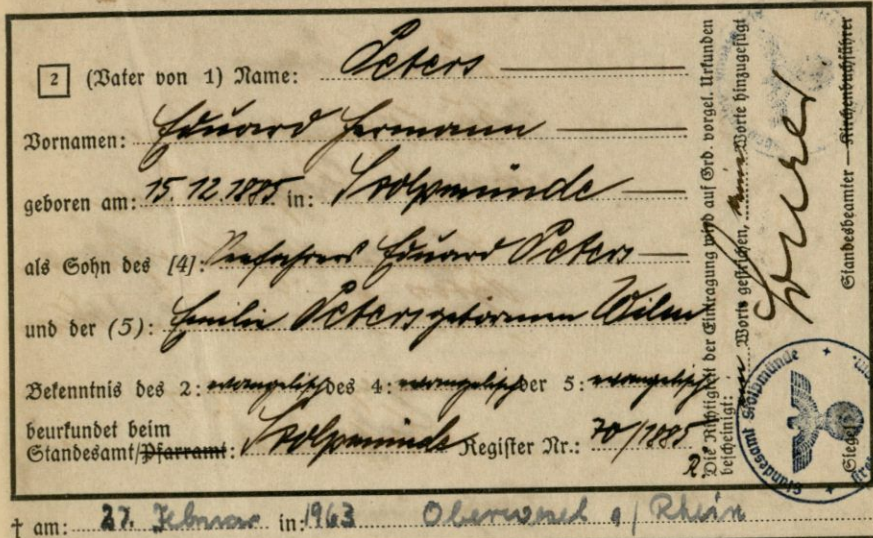 2 (Vater von 1) Name: Peters
Vornamen: Eduard Hermann
geboren am: 15.12.1885 in: Stolpmünde
als Sohn des [4]: Seefahrers Eduard Peters
und der (5): Emilie Peters geborenen Wilm
Bekenntnis des 2: evangelisch des 4: evangelisch der 5: evangelisch
beurkundet beim
Standesamt/Pfarramt: Stolpmünde Register Nr.: 70/1885
† am: 27. Februar in: 1963 Oberwesel a/Rhein
Die Richtigkeit der Eintragung wird auf Grd. vorgel. Urkunden
bescheinigt: Worte gestrichen, Worte hinzugefügt
Standesbeamter — Kirchenbuchführer
Siegel
Standesamt Stolpmünde